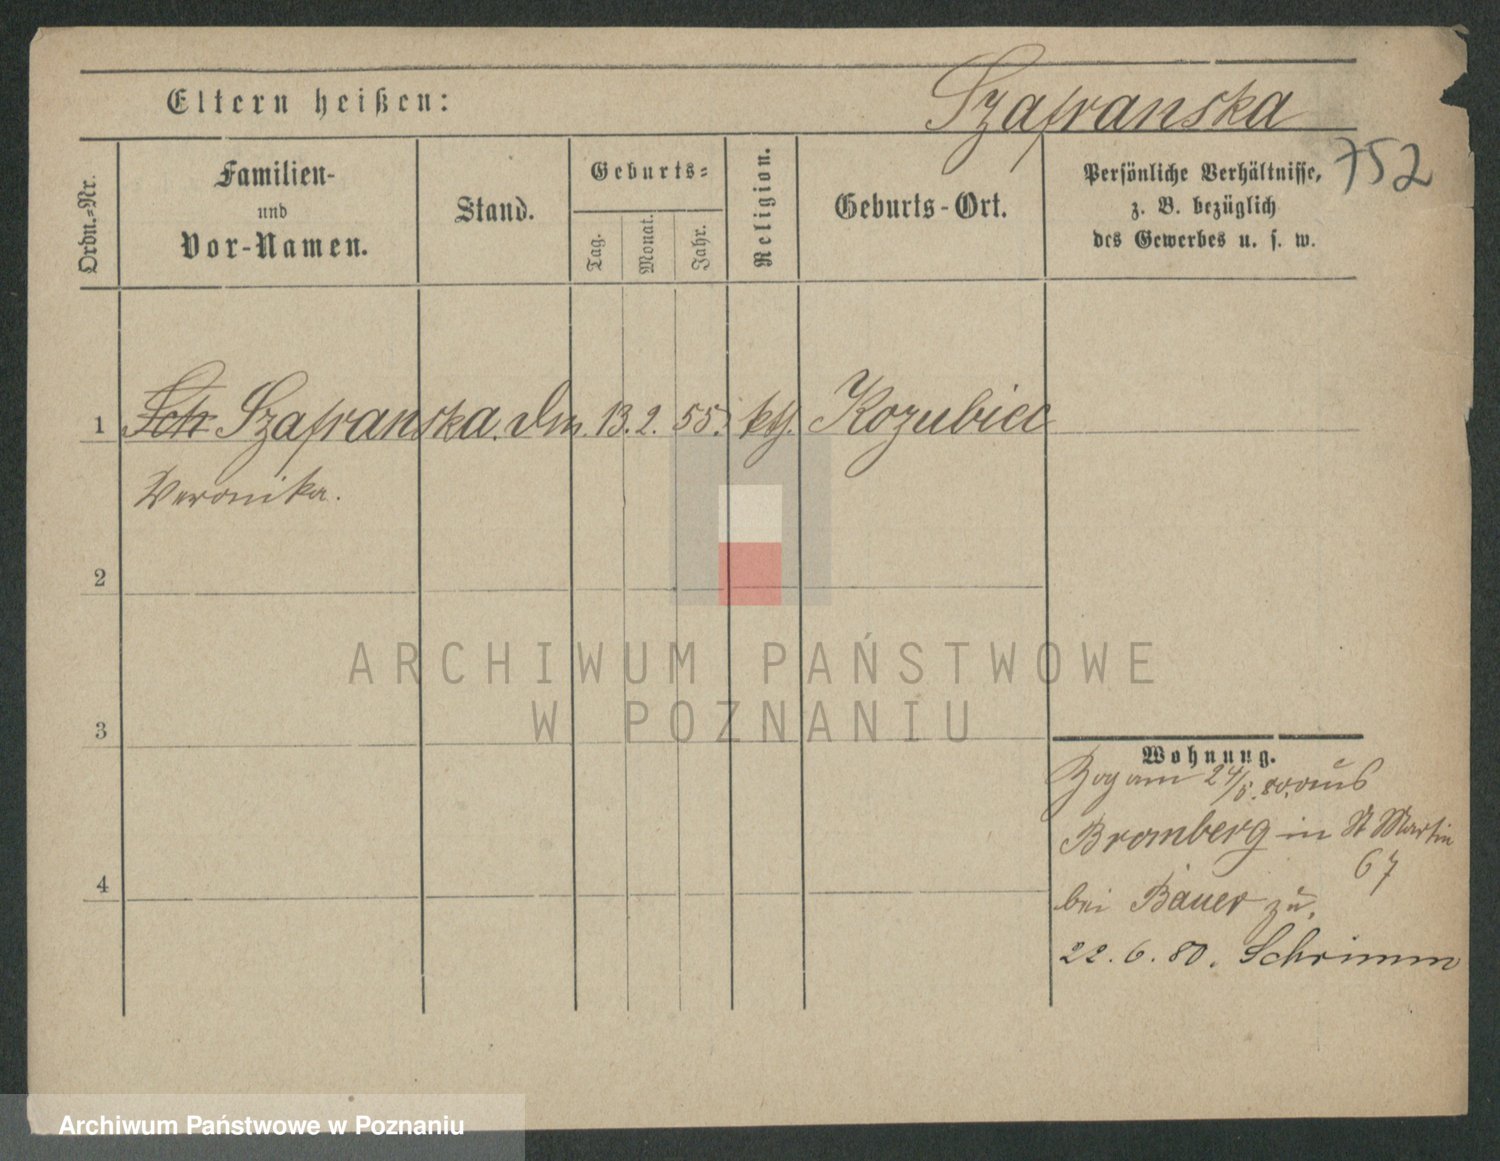 Szafranska
Eltern heißen:
752
Ordn.-Nr.
Familien-
und
Vor-Namen.
Stand.
Geburts-
Tag.
Monat.
Jahr.
Religion.
Geburts-Ort.
Persönliche Verhältnisse,
z. B. bezüglich
des Gewerbes u. s. w.
1 Sch Szafranska. 13. 2. 55. kth. Kozubiec
Veronika.
2
3
4
Wohnung.
Zog am 24/5. 80. aus
Bromberg in St Martin
67
bei Bauer zu.
22. 6. 80. Schrimm
ARCHIWUM PAŃSTWOWE
W POZNANIU
Archiwum Państwowe w Poznaniu